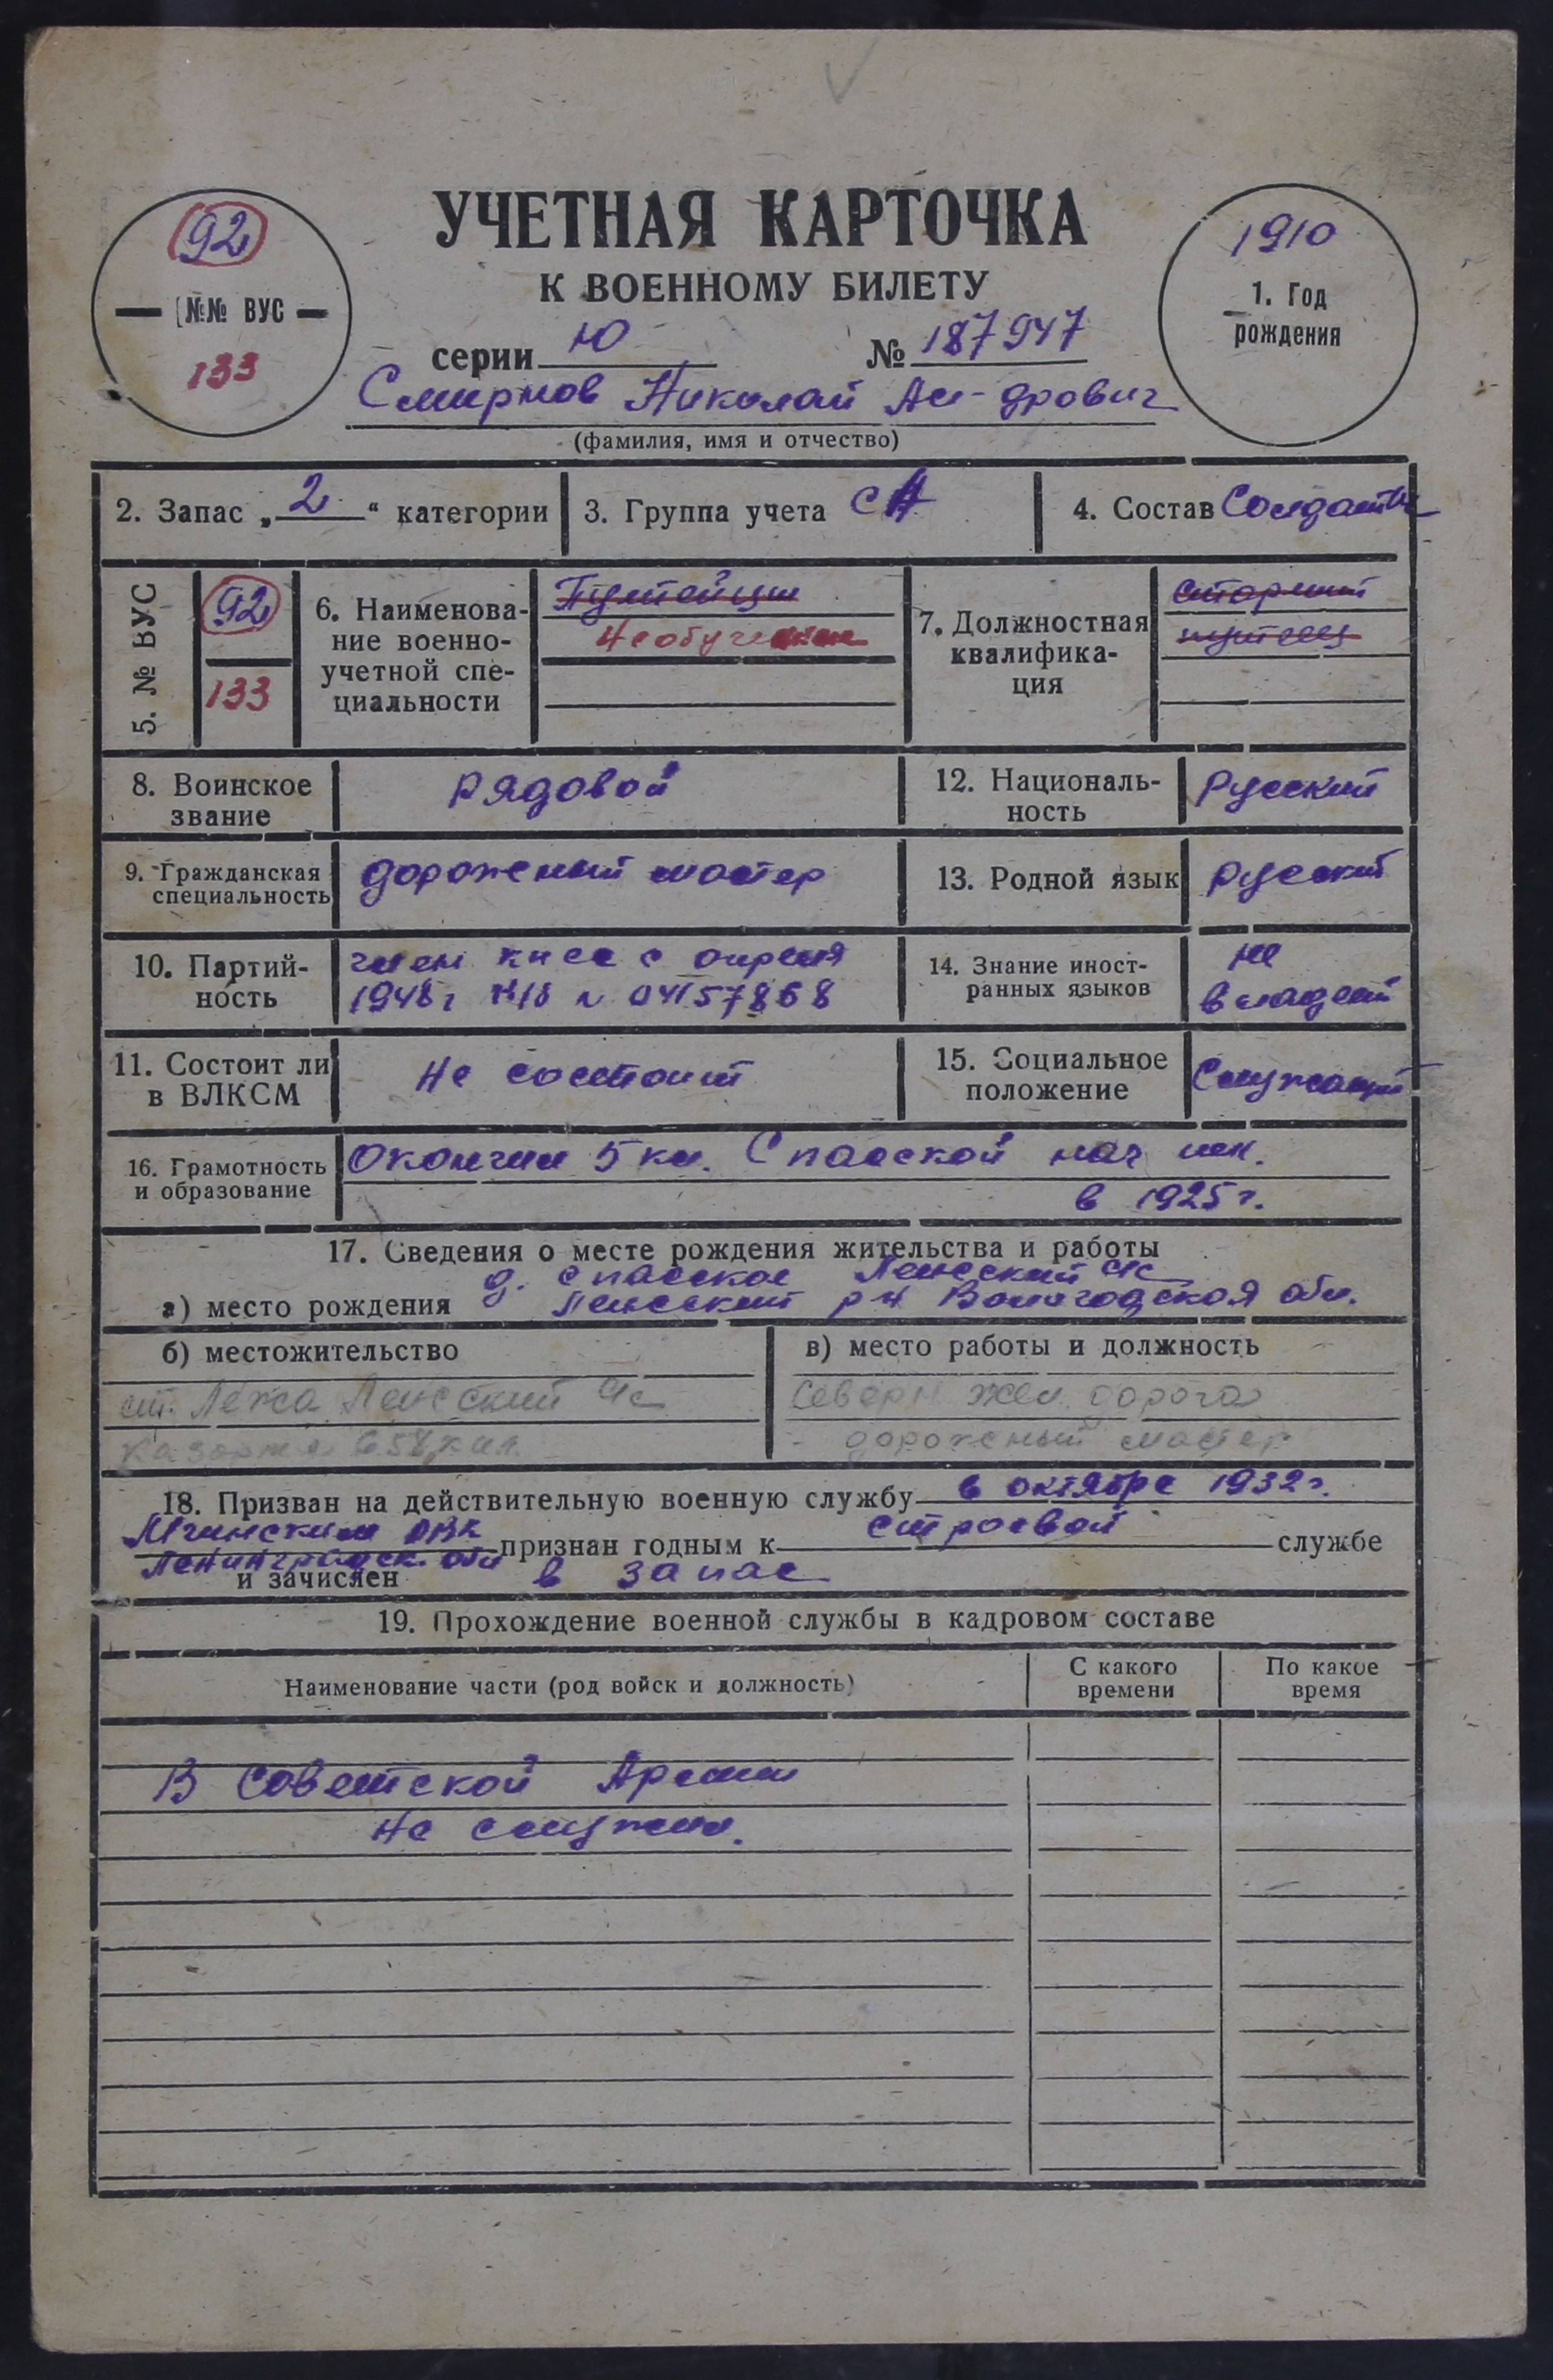 УЧЕТНАЯ КАРТОЧКА
К ВОЕННОМУ БИЛЕТУ
92
№№ ВУС
133
1910
1. Год
рождения
серии Ю № 187947
Смирнов Николай Ал-дрович
(фамилия, имя и отчество)
2. Запас „2“ категории
3. Группа учета СА
4. Состав Солдатск
5. № ВУС
92
133
6. Наименова-
ние военно-
учетной спе-
циальности
Путейцы
Необучен
7. Должностная
квалифика-
ция
старший
путеец
8. Воинское
звание
рядовой
12. Националь-
ность
Русский
9. Гражданская
специальность
дорожный мастер
13. Родной язык
русский
10. Партий-
ность
член кпсс с апреля
1948 г п/б № 04157868
14. Знание иност-
ранных языков
не
владеет
11. Состоит ли
в ВЛКСМ
Не состоит
15. Социальное
положение
Служащий
16. Грамотность
и образование
Окончил 5 кл. Спасской нач шк.
в 1925 г.
17. Сведения о месте рождения жительства и работы
д. Спасское Лежский с/с
а) место рождения Лежский р-н Вологодская обл.
б) местожительство
ст. Лежа Лежский с/с
казарма 658 кил.
в) место работы и должность
Северн жел. дорога
- дорожный мастер
18. Призван на действительную военную службу в октябре 1932 г.
Мгинским РВК
Ленинградск. обл признан годным к строевой службе
и зачислен в запас
19. Прохождение военной службы в кадровом составе
Наименование части (род войск и должность)
С какого
времени
По какое
время
В Советской Армии
не служил.